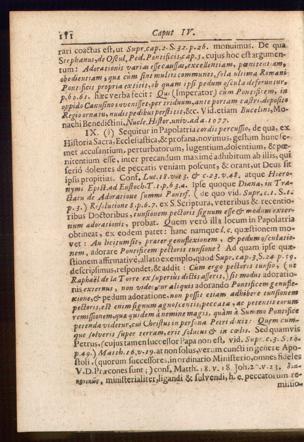 Caput IV.
rari coactus est, ut Supr. cap. 2. S. 32. p. 26. monuimus. De qua
Stephanus, de Oscul. Ped. Pontificis, cap. 3. cujus hoc est argumen-
tum: Adorationis varias esse caussas, excellentiam, pœnitentiam,
obedientiam, quæ cùm sint multis communes, sola ultima Romani
Pontificis propria extitit, ob quam ipsi pedum oscula deferuntur,
p. 62. 63. hæc verba fecit: Qui (Imperator) cùm Pontificem, in
oppido Canusino invenisset, per triduum, ante portam castri, deposito
Regio ornatu, nudis pedibus perstitit, &c. Vid. etiam Bucelini, Mo-
nachi Benedictini, Nucle. Histor. univ. ad a. 1077.
IX. (3) Sequitur in Papolatria cordis percussio, de qua, ex
Historia Sacra, Ecclesiastica, & profana, novimus, gestum hunc se-
met accusantium, perturbatorum, lugentium, dolentium, & pœ-
nitentium esse, inter precandum maximè adhibitum ab illis, qui
seriò dolentes de peccatis veniam poscunt, & orant, ut Deus sit
ipsis propitius. Conf. Luc. 18. v. 13. & c. 23. v. 48. atque Hiero-
nymi Epist. ad Eustoch. T. 1. p. 63. 4. Ipse quoque Diana, in Tra-
ctatu de Adoratione summi Pontif. (de quo vid. Supr. c. 1. S. 1.
p. 3.) Resolutione 1. p. 6. 7. ex S. Scriptura, veteribus & recentio-
ribus Doctoribus, tunsionem pectoris signum esse & medium exter-
num adorationis, probat. Quem verò illa locum in Papolatria
obtineat, ex eodem patet: hanc namque l. c. quæstionem mo-
vet: An licitum sit, præter genuflexionem, & pedum osculatio-
nem, adorare Pontificem pectoris tunsione? Ad quam ipse quæ-
stionem affirmativè, allato exemplo, quod Supr. cap. 3. S. 24. p. 59.
descripsimus, respondet, & addit: Cùm ergo pectoris tunsio, (ut
Raphaël de la Torre ex superiùs dictis asserit,) sit modus adoratio-
nis externus, non videtur aliquis adorando Pontificem genufle-
xione, & pedum adoratione, non posse etiam adhibere tunsionem
pectoris, si sit enim signum agnoscentis peccata, ac petentis eorum
remissionem, qua quidem à nemine magis, quàm à Summo Pontifice
petenda videtur, cui Christus in persona Petri dixit: Quem cum-
que solveris super terram, erit solutus & in cœlis. Sed quamvis
Petrus, (cujus tamen successor Papa non est, vid. Supr. c. 3. S. 10.
p. 49.) Matth. 16. v. 19. at non solus, verum cuncti in genere Apo-
stoli, (quorum successores, in ordinario Ministerio, omnes fideles
V. D. Præcones sunt;) conf. Matth. 18. v. 18. Joh. 20. v. 23,
ministerialiter, ligandi & solvendi, h. e. peccatorum re-